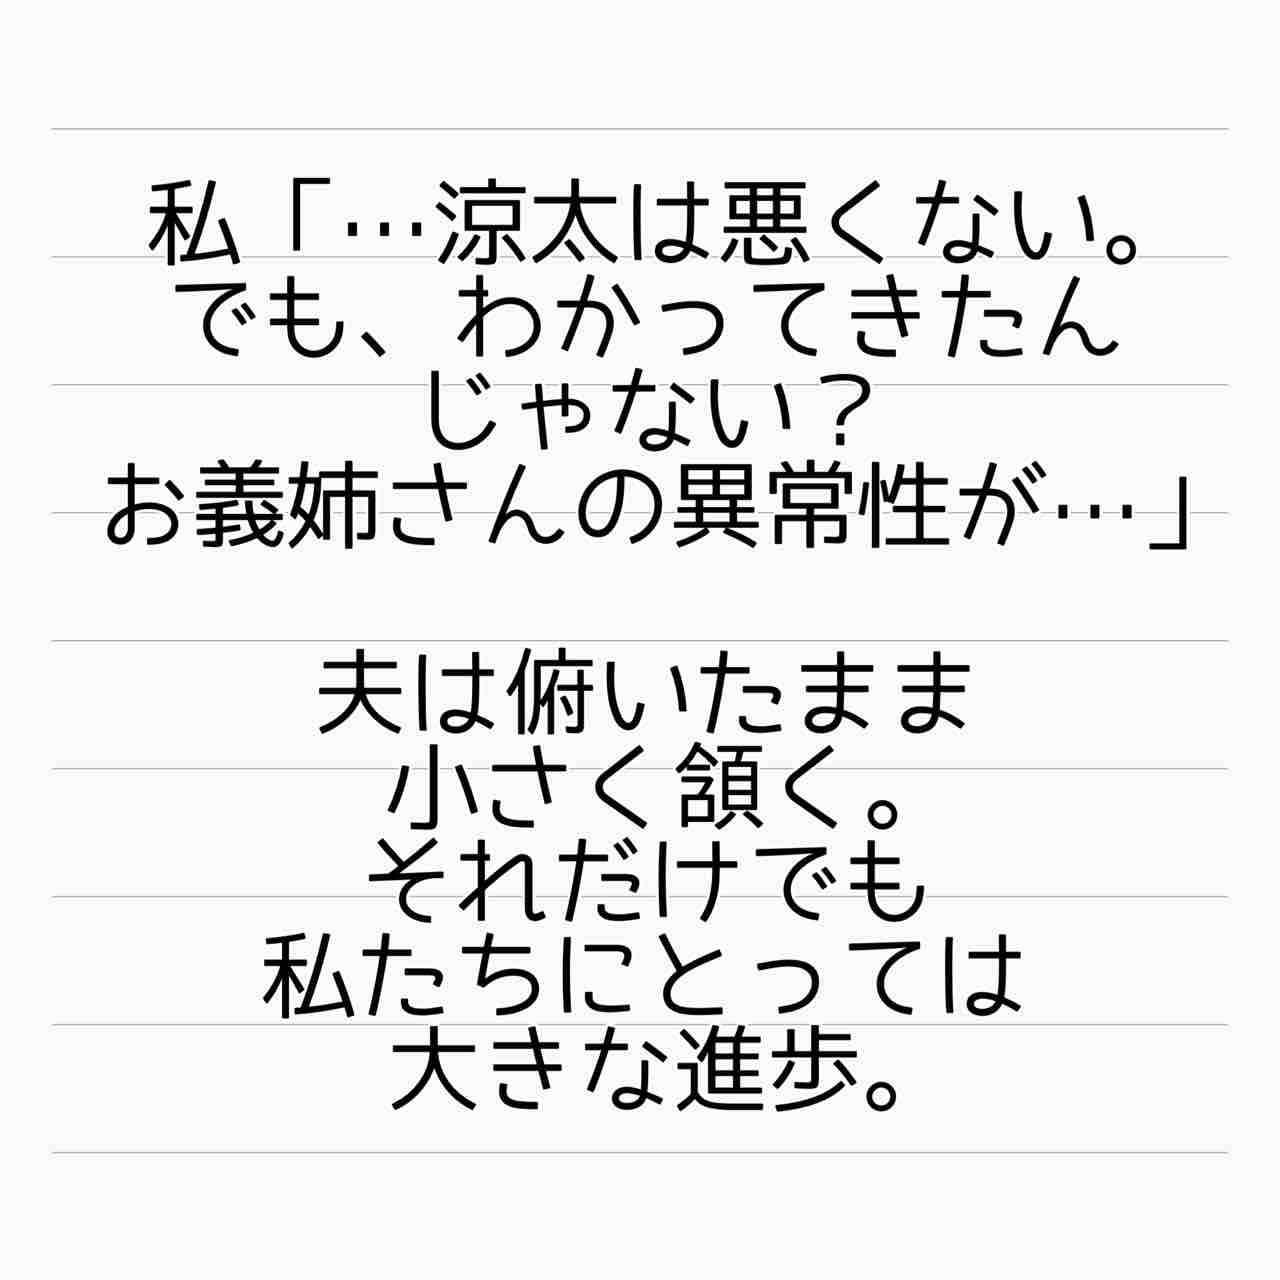 私「…涼太は悪くない。
でも、わかってきたん
じゃない？
お義姉さんの異常性が…」
夫は俯いたまま
小さく頷く。
それだけでも
私たちにとっては
大きな進歩。